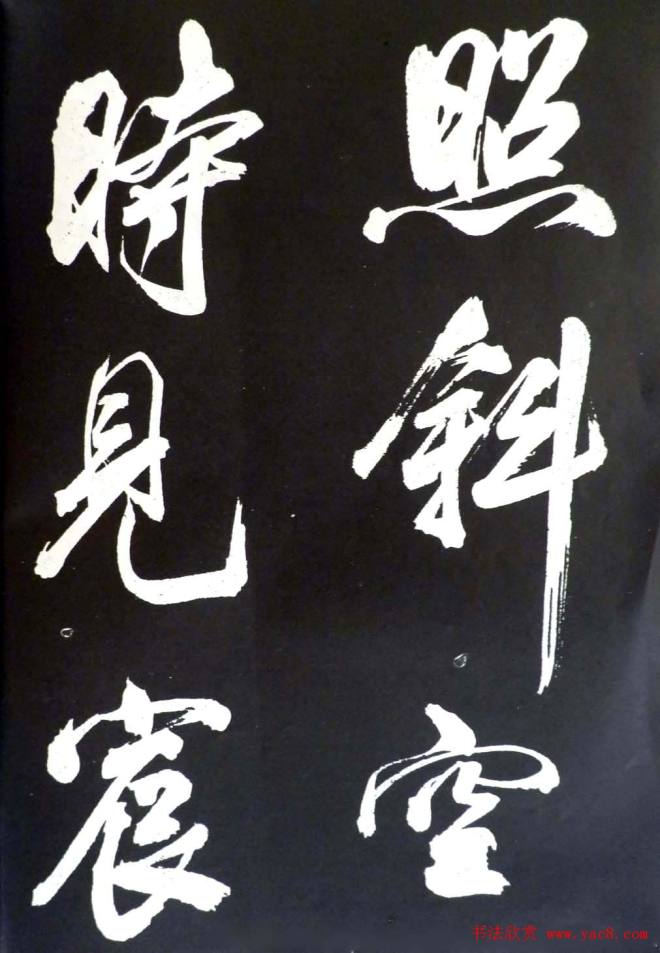 照斜空
時見宸
书法欣赏 www.yac8.com